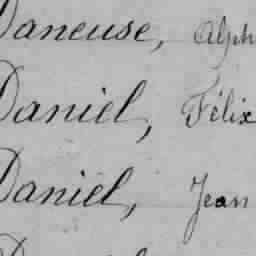 Daneuse, Alph
Daniel, Félix
Daniel, Jean